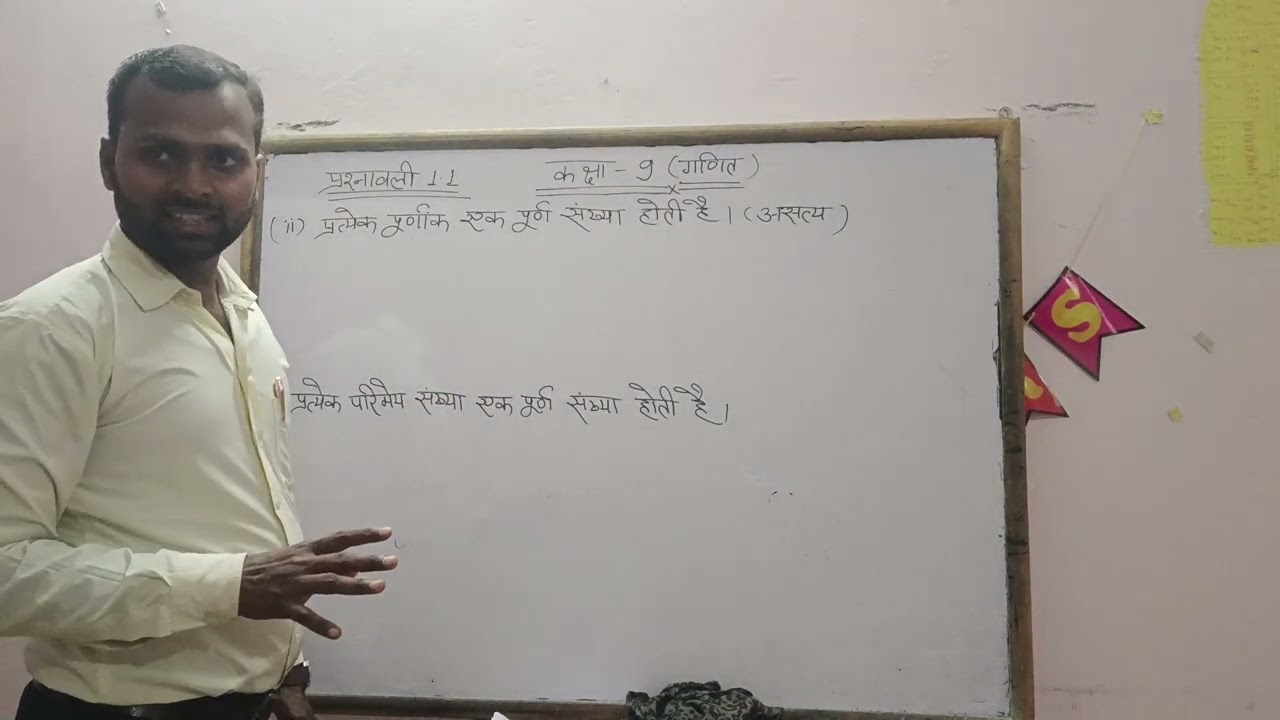 प्रश्नावली 1.1
कक्षा - 9 (गणित)
(ii) प्रत्येक पूर्णांक एक पूर्ण संख्या होती है। (असत्य)
प्रत्येक परिमेय संख्या एक पूर्ण संख्या होती है।
S